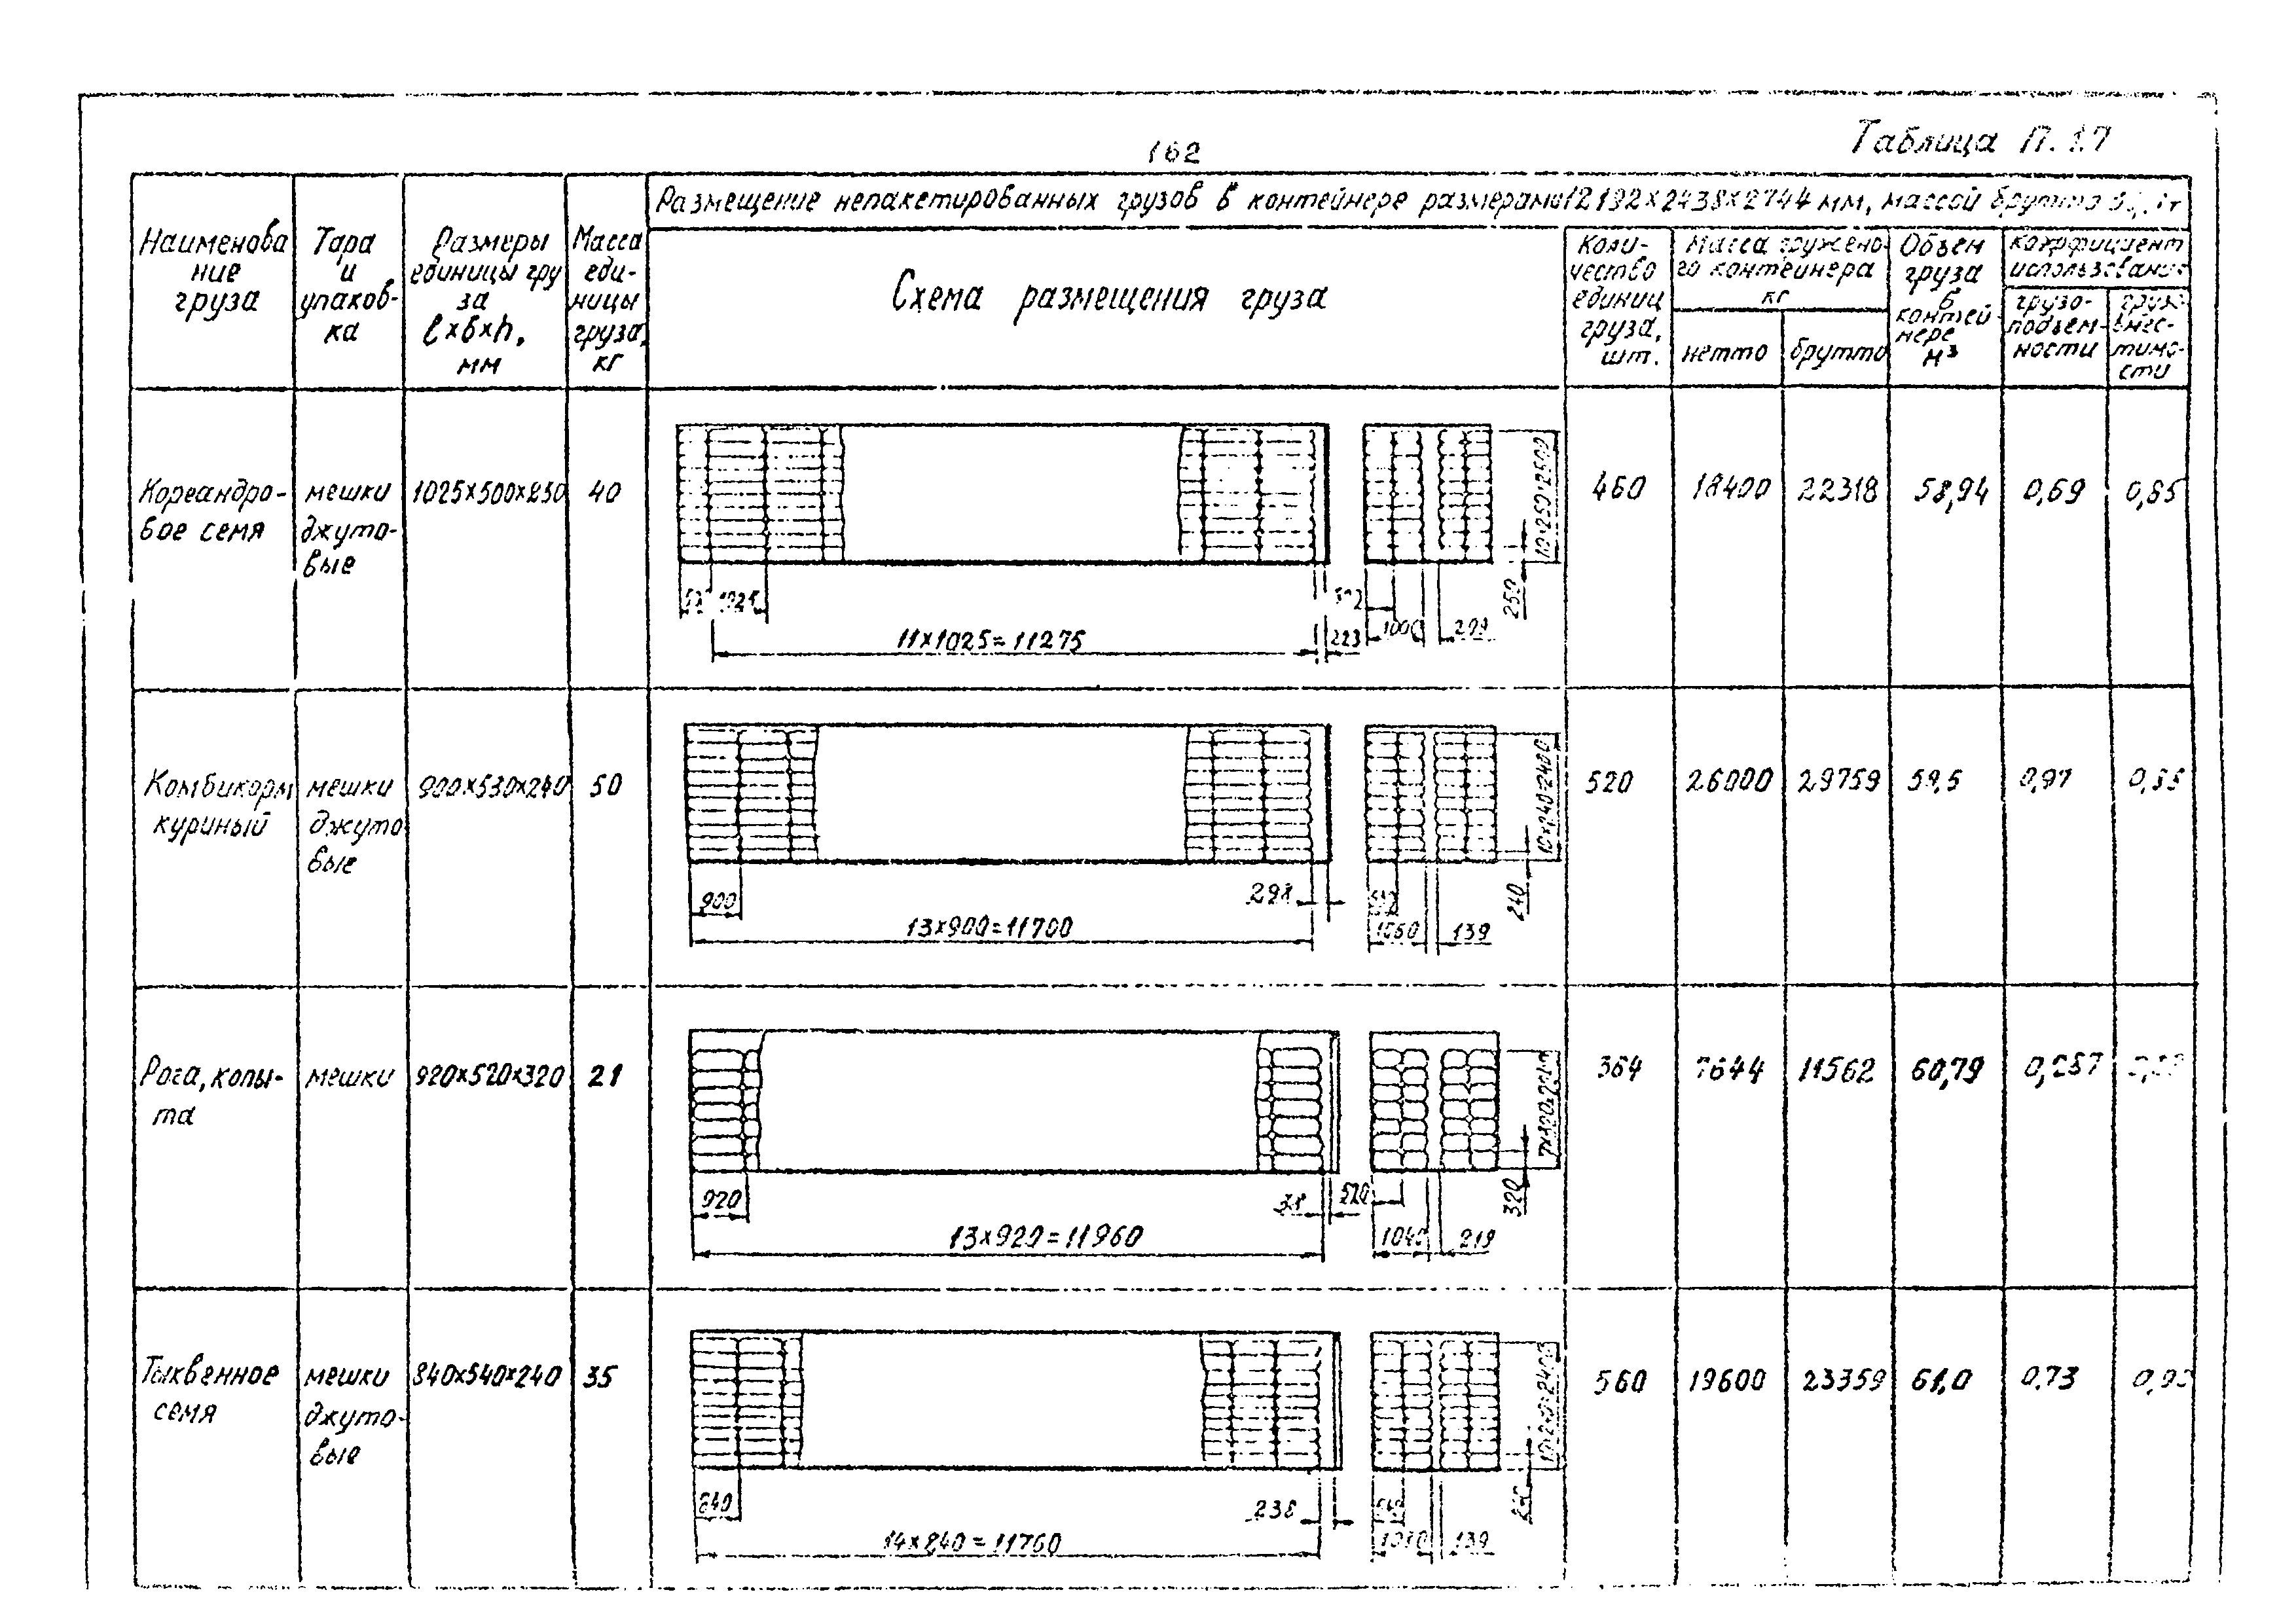 162
Таблица П. 1.7
Наименова
ние
груза
Тара
и
упаков-
ка
Размеры
единицы гру
за
l×b×h,
мм
Масса
еди-
ницы
груза,
кг
Размещение непакетированных грузов в контейнере размерами 12192×2438×2744 мм, массой брутто
Схема размещения груза
Коли-
чество
единиц
груза,
шт.
Масса гружено-
го контейнера
кг
нетто
брутто
Объем
груза
в
контей-
нере
м³
коэффициент
использования
грузо-
подъем-
ности
грузо-
вмес-
тимо-
сти
Кореандро-
вое семя
мешки
джуто-
вые
1025×500×250
40
10×250=2500
250
1025
11×1025=11275
223
1000
460
18400
22318
58,94
0,69
0,85
Комбикорм
куриный
мешки
джуто
вые
900×530×240
50
10×240=2400
240
900
13×900=11700
298
1060
139
520
26000
29759
59,5
0,97
Рога, копы-
та
мешки
920×520×320
21
320
920
13×920=11960
38
520
1040
219
364
7644
11562
60,79
0,287
Тыквенное
семя
мешки
джуто-
вые
840×540×240
35
10×240=2400
240
840
14×840=11760
238
540
1080
139
560
19600
23359
61,0
0,73